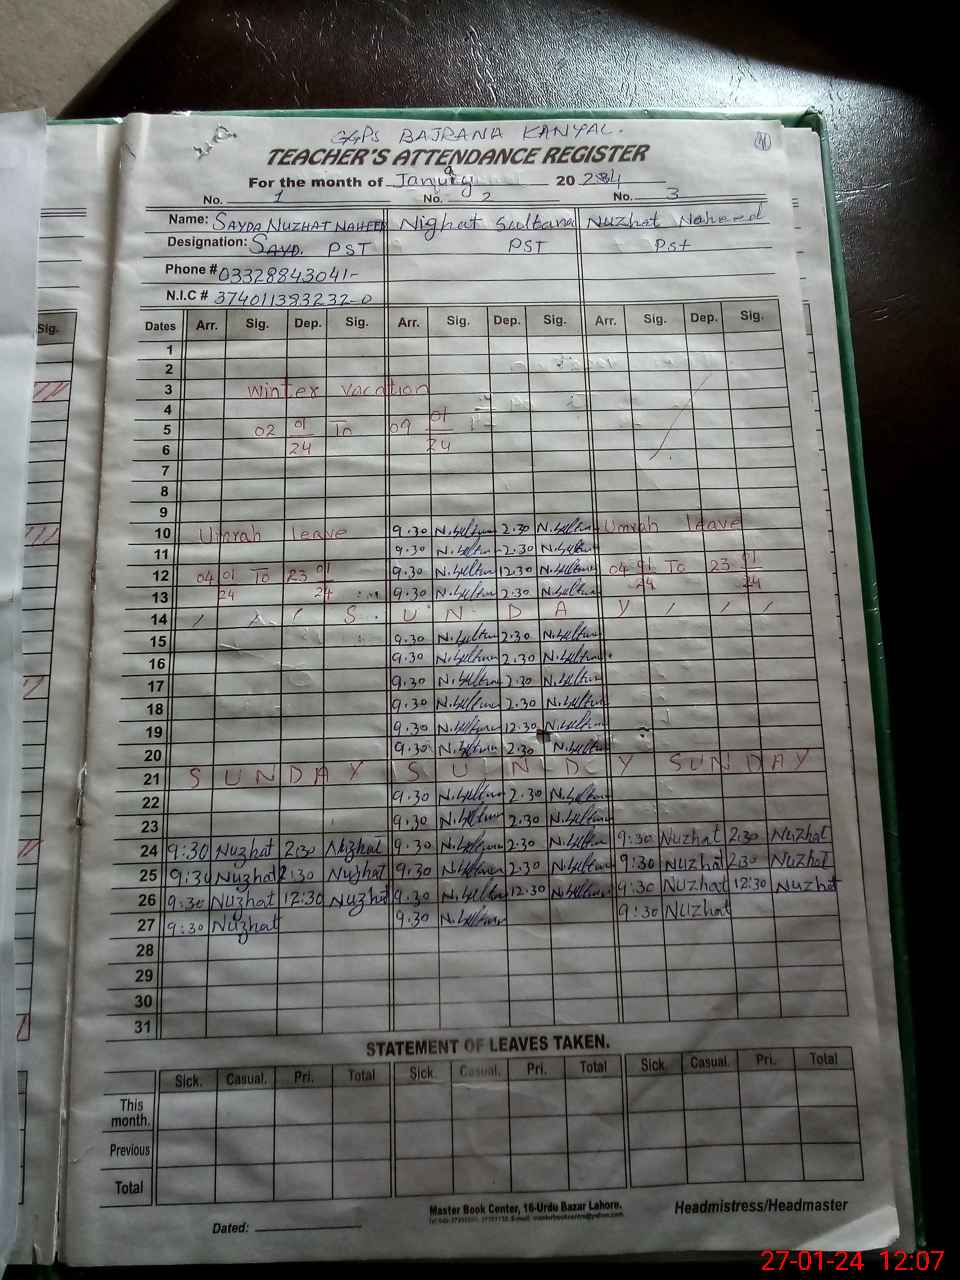 GGPS BAJRANA KANYAL.
TEACHER'S ATTENDANCE REGISTER
For the month of January 2024
No. 1 No. 2 No. 3
Name: SAYDA NUZHAT NAHEED Nighat Sultana Nuzhat Naheed
Designation: SAYD. PST PST PSt
Phone # 03328843041-
N.I.C # 374011393232-0
Sig.
Dates Arr. Sig. Dep. Sig. Arr. Sig. Dep. Sig. Arr. Sig. Dep. Sig.
1
2
3 Winter vacation
4
5 02 01/24 To 09 01/24
6
7
8
9
10 Umrah leave 9.30 N.Sultana 2.30 N.Sultana Umrah leave
11 9.30 N.Sultana 2.30 N.Sultana
12 04 01/24 To 23 01/24 9.30 N.Sultana 12.30 N.Sultana 04 01/24 To 23 01/24
13 9.30 N.Sultana 2.30 N.Sultana
14 S U N D A Y
15 9.30 N.Sultana 2.30 N.Sultana
16 9.30 N.Sultana 2.30 N.Sultana
17 9.30 N.Sultana 2.30 N.Sultana
18 9.30 N.Sultana 2.30 N.Sultana
19 9.30 N.Sultana 12.30 N.Sultana
20 9.30 N.Sultana 2.30 N.Sultana
21 S U N D A Y S U N D Y S U N D A Y
22 9.30 N.Sultana 2.30 N.Sultana
23 9.30 N.Sultana 2.30 N.Sultana
24 9:30 Nuzhat 2:30 Nuzhat 9.30 N.Sultana 2.30 N.Sultana 9:30 Nuzhat 2:30 Nuzhat
25 9:30 Nuzhat 2:30 Nuzhat 9.30 N.Sultana 2.30 N.Sultana 9:30 Nuzhat 2:30 Nuzhat
26 9:30 Nuzhat 12:30 Nuzhat 9.30 N.Sultana 12.30 N.Sultana 9:30 Nuzhat 12:30 Nuzhat
27 9:30 Nuzhat 9.30 N.Sultana 9:30 Nuzhat
28
29
30
31
STATEMENT OF LEAVES TAKEN.
Sick. Casual. Pri. Total Sick. Casual. Pri. Total Sick. Casual. Pri. Total
This month.
Previous
Total
Master Book Center, 16-Urdu Bazar Lahore.
Dated: Headmistress/Headmaster
27-01-24 12:07